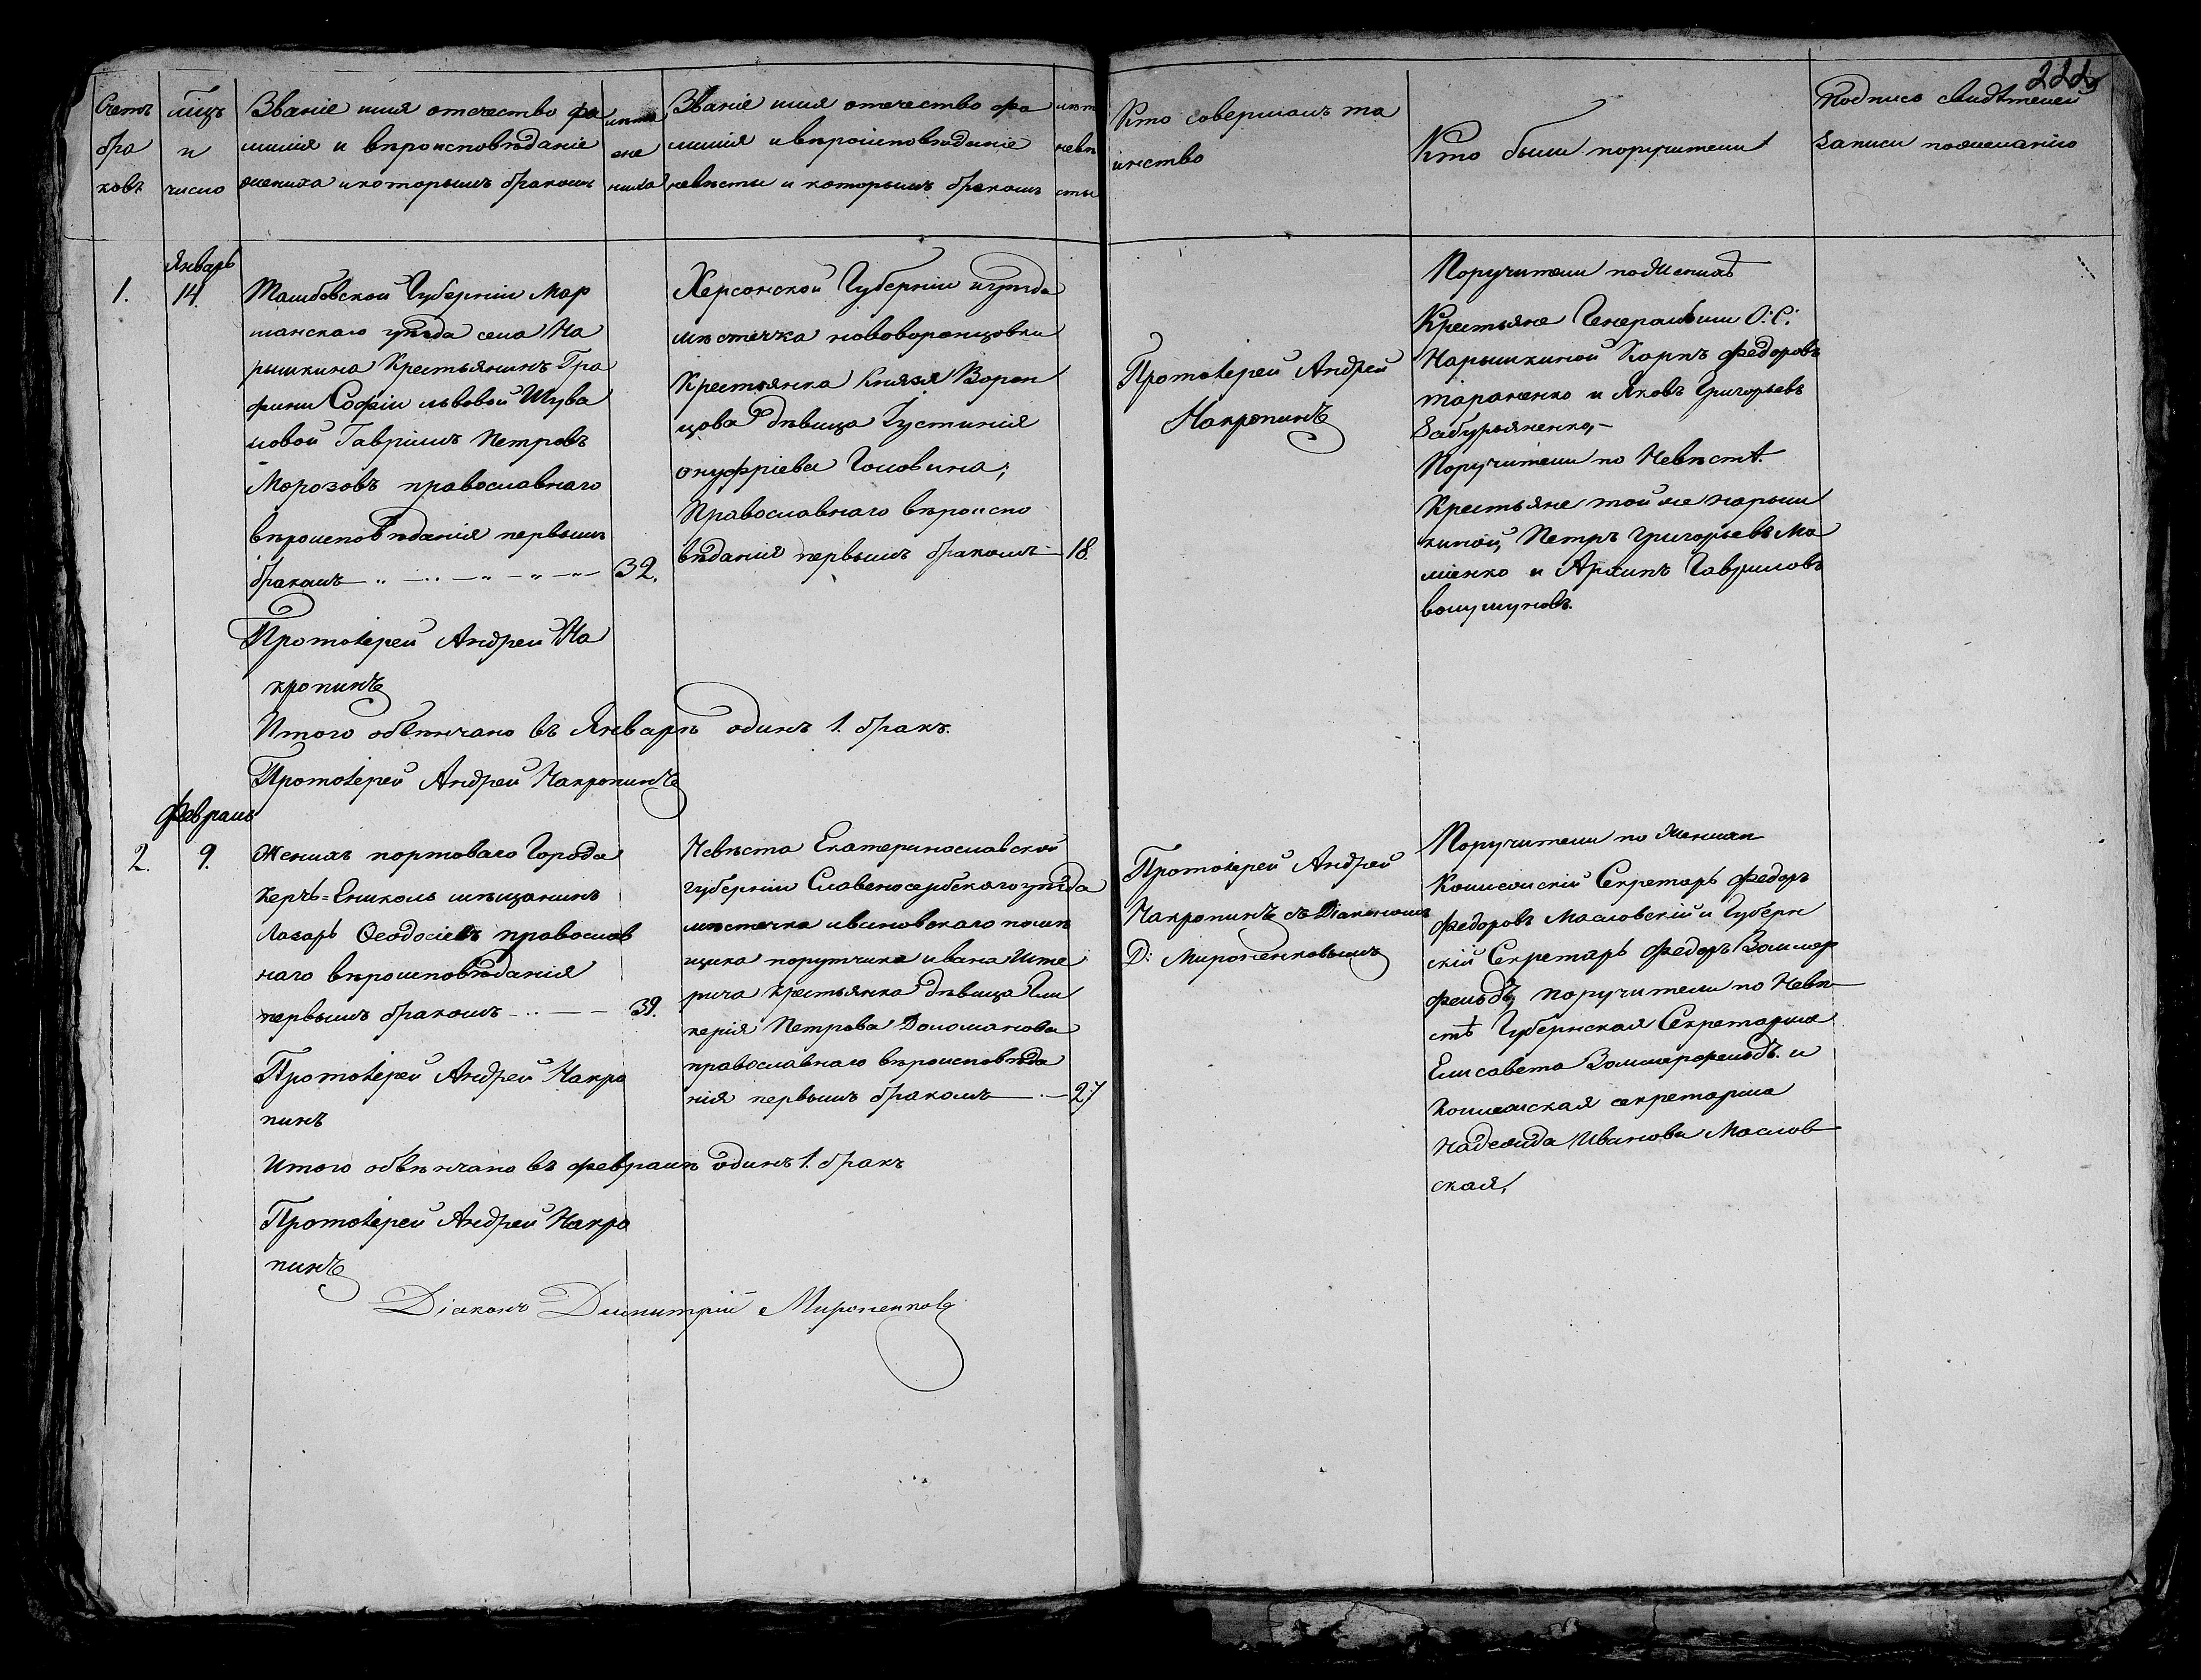 222
Счетъ
бра
ковъ
мѣцъ
и
число
Званіе имя отечество фа
милія и вѣроисповѣданіе
жениха и которымъ бракомъ
лѣта
же
ниха
Званіе имя отечество фа
милія и вѣроисповѣданіе
невѣсты и которымъ бракомъ
лѣт
невѣ
сты
Кто совершалъ та
инство
Кто были поручители
Подпись свидѣтелей
записи по желанію
1.
Январь
14.
Тамбовской Губерніи Мор
шанскаго уѣзда села На
рышкина Крестьянинъ Гра
фини Софіи львовой Шува
ловой Гавріилъ Петровъ
Морозовъ православнаго
вѣроисповѣданія первымъ
бракомъ 32.
Протоіерей Андрей На
кропинъ
Херсонской Губерніи и уѣзда
мѣстечка нововоронцовки
Крестьянка Князя Ворон
цова дѣвица Іустинія
онуфріева Головина;
Православнаго вѣроиспо
вѣданія первымъ бракомъ 18.
Протоіерей Андрей
Накропинъ
Поручители по Женихѣ
Крестьяне Генеральши О: С:
Нарышкиной Карпъ Федоровъ
тараненко и Яковъ Григорьевъ
Забурьяненко,
Поручители по Невѣстѣ
Крестьяне той же нарыш
киной, Петръ Григорьевъ Ма
Гавриловъ
Итого обвѣнчано въ Январѣ одинъ 1. бракъ.
Протоіерей Андрей Накропинъ
2.
Февраль
9.
Женихъ портоваго Города
Керчь=Ениколь мѣщанинъ
Лазарь Ѳеодосіевъ православ
наго вѣроисповѣданія
первымъ бракомъ 39.
Протоіерей Андрей Накро
пинъ
Невѣста Екатеринославской
губерніи Славеносербскаго уѣзда
мѣстечка ивановскаго помѣ
щика порутчика ивана Ште
рича крестьянка дѣвица Гли
керія Петрова Доломанова
православнаго вѣроисповѣда
нія первымъ бракомъ 27
Протоіерей Андрей
Накропинъ съ Діакономъ
Д: Мироненковымъ
Поручители по Женихѣ
Колежскій Секретарь Федоръ
Федоровъ Масловскій и Губерн
скій Секретарь Федоръ Золмер
фельдъ, поручители по Невѣ
стѣ Губернская Секретарша
Елисавета Золмерфельдъ. и
Колежская секретарша
Надежда Иванова Маслов
ская,
Итого обвѣнчано въ февралѣ одинъ 1. бракъ
Протоіерей Андрей Накро
пинъ
Діаконъ Димитрій Мироненков